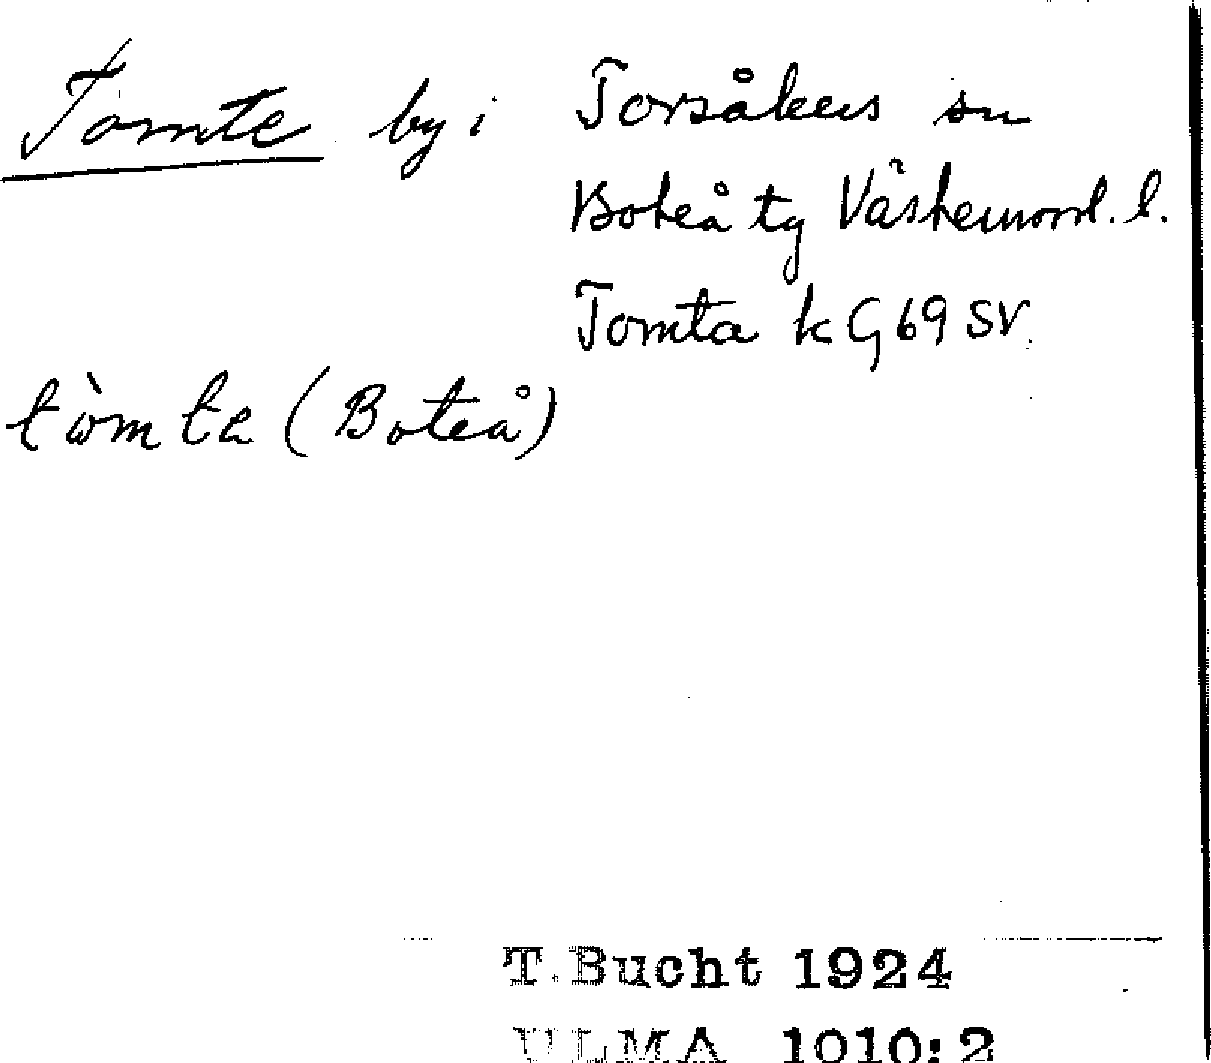 Tomte by i Torsåkers sn
Boteå tg Västernorrl. l.
Tomta k G 69 SV.
tòmta (Boteå)
T. Bucht 1924
ULMA 1010:2